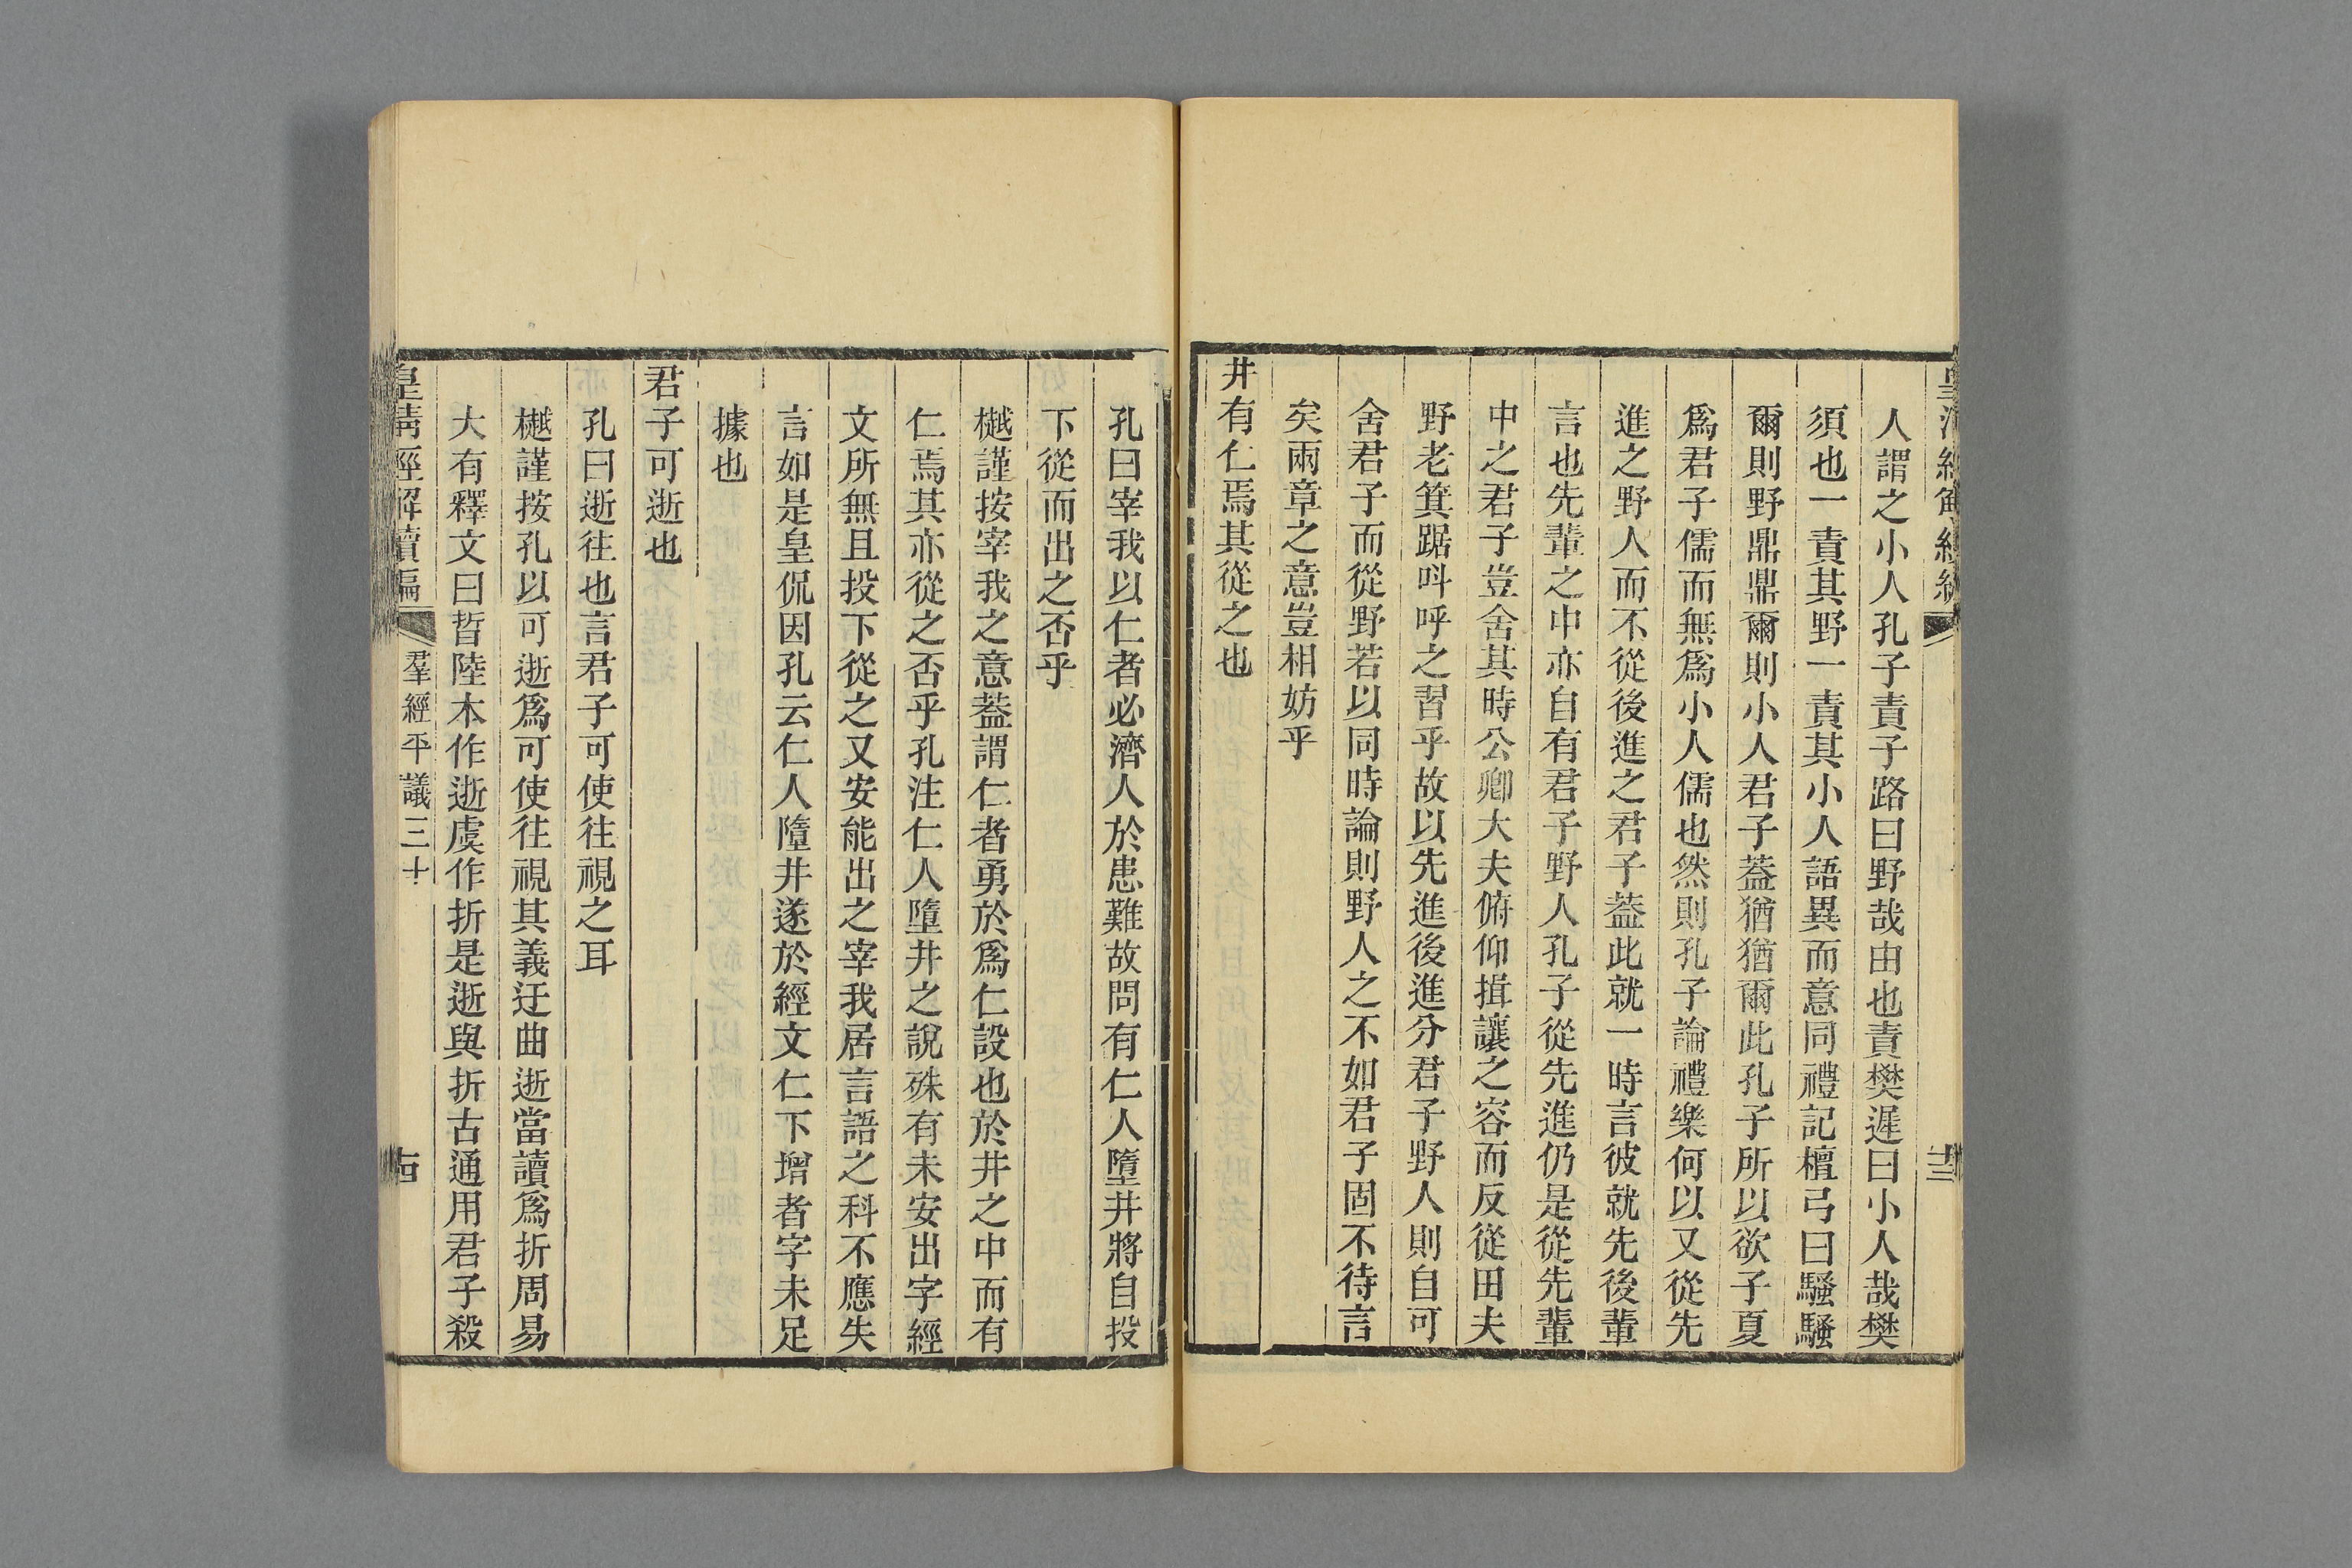 人謂之小人孔子責子路曰野哉由也責樊遲曰小人哉樊
須也一責其野一責其小人語異而意同禮記檀弓曰騷騷
爾則野鼎鼎爾則小人君子葢猶猶爾此孔子所以欲子夏
爲君子儒而無爲小人儒也然則孔子論禮樂何以又從先
進之野人而不從後進之君子葢此就一時言彼就先後輩
言也先輩之中亦自有君子野人孔子從先進仍是從先輩
中之君子豈舍其時公卿大夫俯仰揖讓之容而反從田夫
野老箕踞呌呼之習乎故以先進後進分君子野人則自可
舍君子而從野若以同時論則野人之不如君子固不待言
矣兩章之意豈相妨乎
井有仁焉其從之也
孔曰宰我以仁者必濟人於患難故問有仁人墮井將自投
下從而出之否乎
樾謹按宰我之意葢謂仁者勇於爲仁設也於井之中而有
仁焉其亦從之否乎孔注仁人墮井之說殊有未安出字經
文所無且投下從之又安能出之宰我居言語之科不應失
言如是皇侃因孔云仁人墮井遂於經文仁下增者字未足
據也
君子可逝也
孔曰逝往也言君子可使往視之耳
樾謹按孔以可逝爲可使往視其義迂曲逝當讀爲折周易
大有釋文曰晢陸本作逝虞作折是逝與折古通用君子殺
皇清經解續編 羣經平議三十 十四